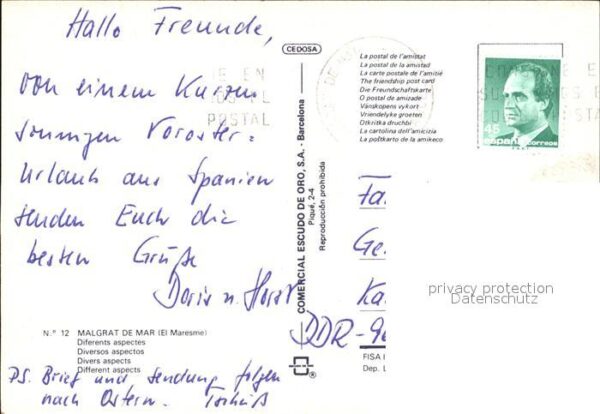 Hallo Freunde,
von einem kurzen
sonnigen Voroster-
urlaub aus Spanien
senden Euch die
besten Grüße
Doris u. Horst
N.º 12 MALGRAT DE MAR (El Maresme)
Diferents aspectes
Diversos aspectos
Divers aspects
Different aspects
P.S. Brief und Sendung folgen
nach Ostern.
CEDOSA
COMERCIAL ESCUDO DE ORO, S.A. - Barcelona
Piqué, 2-4
Reproducción prohibida
®
La postal de l'amistat
La postal de la amistad
La carte postale de l'amitié
The friendship post card
Die Freundschaftskarte
O postal de amizade
Vänskopens vykort
Vriendelyke groeten
Otkritka druchbi
La cartolina dell'amicizia
La postkarto de la amikeco
45
españa correos
POSTAL
Fa
Ge
Ka
DDR-90
privacy protection
Datenschutz
FISA
Dep. L